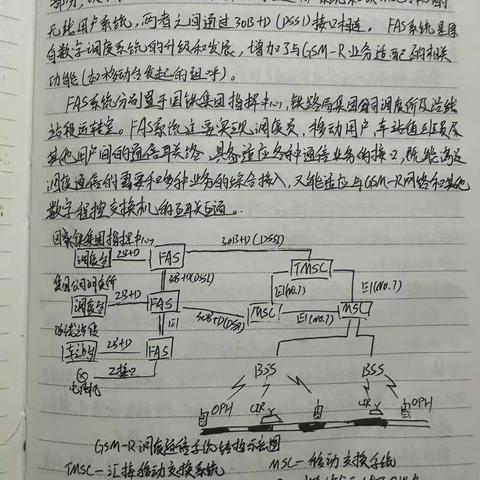 无线用户系统，两者之间通过30B+D(DSS1)接口相连。FAS系统是原
有数字调度系统的升级和发展，增加了与GSM-R业务适配的相关
功能(如移动台发起的组呼)。
FAS系统分别置于国铁集团指挥中心，铁路局集团公司调度所及沿线
站段运转室。FAS系统主要实现调度员，移动用户，车站值班员及
其他用户间的通信互关络，具备适应各种通信业务的接口，既能满足
调度通信的需要和多种业务的综合接入，又能适应与GSM-R网络和其他
数字程控交换机的互联互通。
国家铁集团指挥中心
调度台 2B+D FAS 30B+D(DSS1)
TMSC
集团公司调度所 30B+D(DSS1)
E1(NO.7)
调度台 2B+D FAS 30B+D(DSS1) MSC MSC
E1(NO.7)
E1
沿线站段
车站台 2B+D FAS
Z接口
电话机
BSS BSS
OPH CIR CIR OPH
GSM-R调度通信系统结构示意图
TMSC—汇接移动交换系统 MSC—移动交换系统